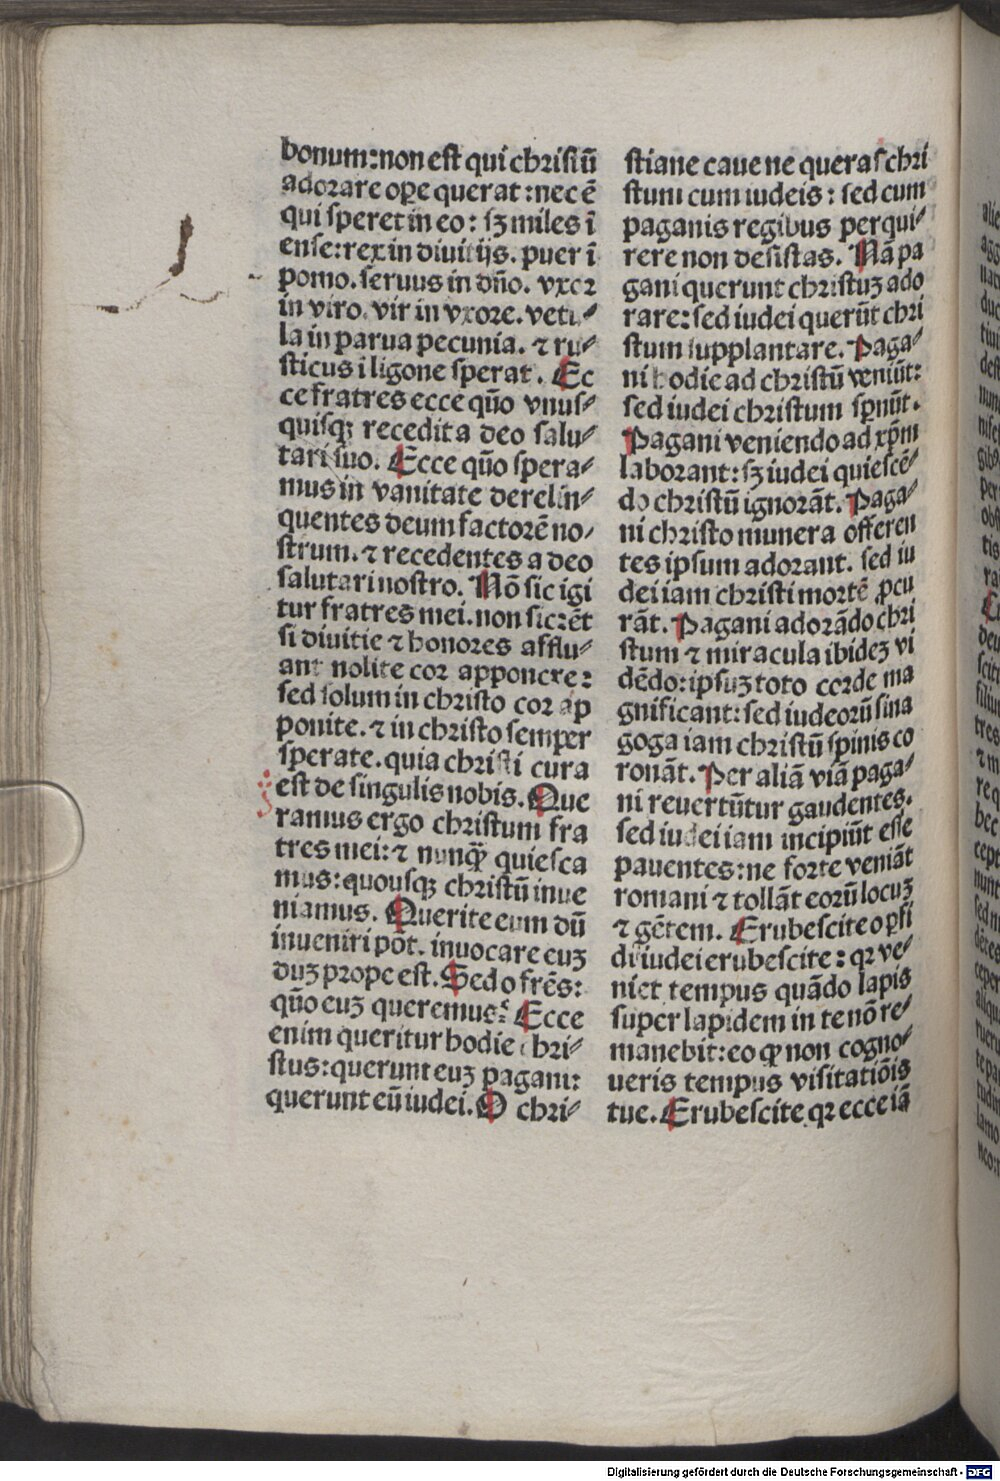 bonum:non est qui christū
adorare oꝑe querat:nec ē
qui speret in eo: sꝫ miles ī
ense:rex in diuitijs. puer ī
pomo. seruus in dño. vxor
in viro. vir in vxore. vetu⸗
la in parua pecunia. ⁊ ru⸗
sticus i ligone sperat. Ec
ce fratres ecce qūo vnus⸗
quisqꝫ recedit a deo salu⸗
tari suo. Ecce qūo spera⸗
mus in vanitate derelin⸗
quentes deum factorē no⸗
strum. ⁊ recedentes a deo
salutari nostro. Nō sic igi
tur fratres mei. non sic: ēt
si diuitie ⁊ honores afflu⸗
ant nolite cor apponere:
sed solum in christo cor ap
ponite. ⁊ in christo semper
sperate. quia christi cura
est de singulis nobis. Que
ramus ergo christum fra
tres mei: ⁊ nunꝙ̄ quiesca
mus: quousqꝫ christū inue
niamus. Querite eum dū
inueniri pōt. inuocare euꝫ
duꝫ prope est. Sed o frēs:
qūo euꝫ queremus? Ecce
enim queritur hodie chri⸗
stus: querunt euꝫ pagani:
querunt eū iudei. O chri⸗
stiane caue ne queras chri
stum cum iudeis: sed cum
paganis regibus perqui⸗
rere non desistas. Nā pa
gani querunt christuꝫ ado
rare: sed iudei querūt chri
stum supplantare. Paga⸗
ni hodie ad christū veniūt:
sed iudei christum spnūt.
Pagani veniendo ad xp̄m
laborant: sꝫ iudei quiescē⸗
do christū ignorāt. Paga⸗
ni christo munera offeren
tes ipsum adorant. sed iu
dei iam christi mortē ꝓcu
rāt. Pagani adorādo chri
stum ⁊ miracula ibideꝫ vi
dēdo: ipsuꝫ toto corde ma
gnificant: sed iudeorū sina
goga iam christū spinis co
ronāt. Per aliā viā paga⸗
ni reuertūtur gaudentes.
sed iudei iam incipiūt esse
pauentes: ne forte veniāt
romani ⁊ tollāt eorū locuꝫ
⁊ gētem. Erubescite o ꝑfi
di iudei erubescite: qꝛ ve⸗
niet tempus quādo lapis
super lapidem in te nō re⸗
manebit: eo ꝙ non cogno⸗
ueris tempus visitatiōis
tue. Erubescite qꝛ ecce iā
Digitalisierung gefördert durch die Deutsche Forschungsgemeinschaft - DFG